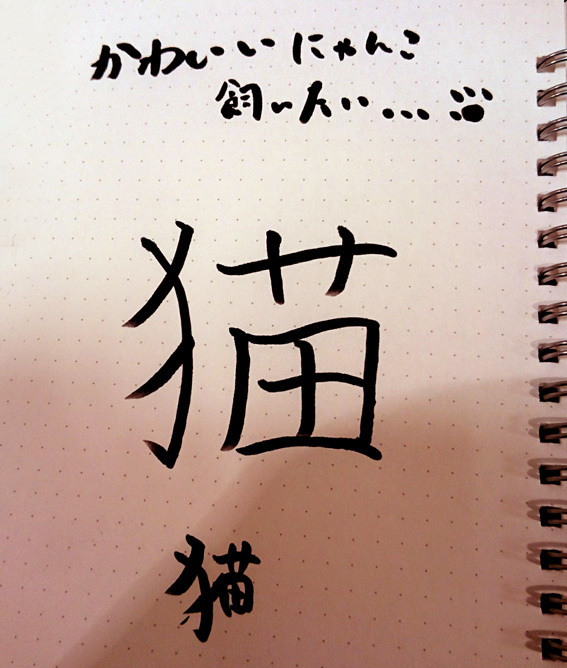 かわいいにゃんこ
飼いたい...
猫
猫